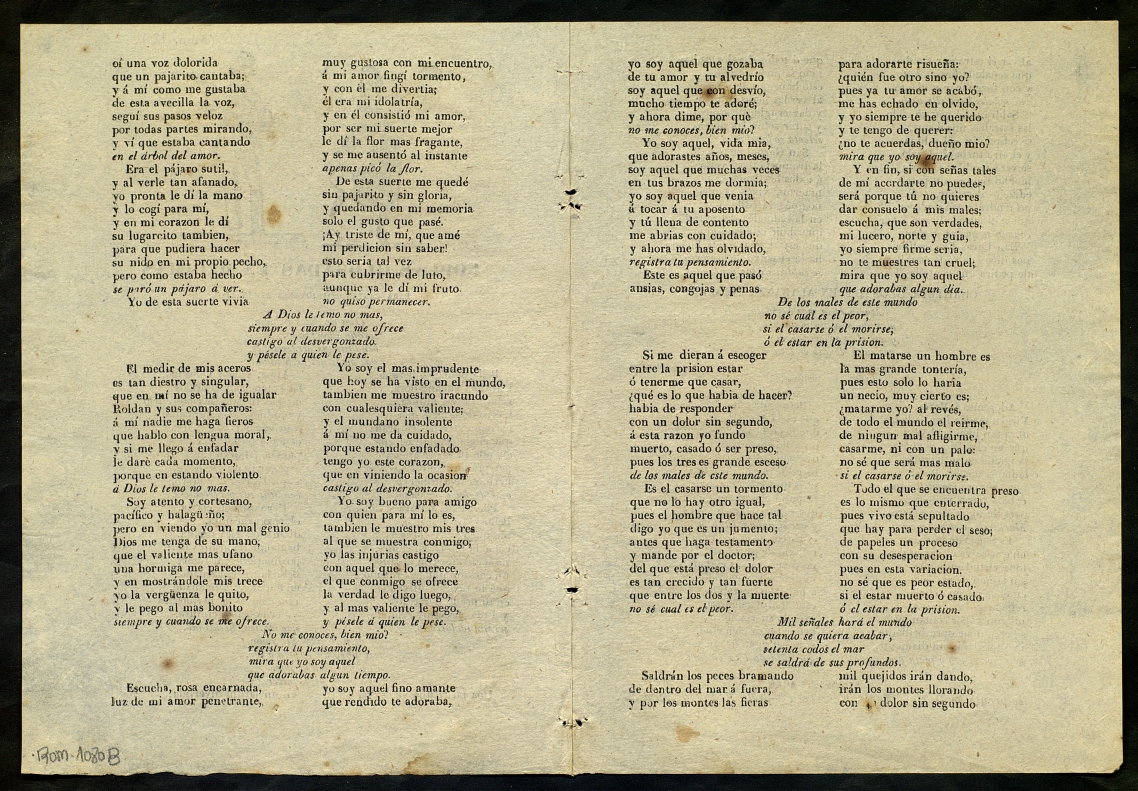 oí una voz dolorida
que un pajarito cantaba;
y á mí como me gustaba
de esta avecilla la voz,
seguí sus pasos veloz
por todas partes mirando,
y ví que estaba cantando
en el árbol del amor.
Era el pájaro sutil,
y al verle tan afanado,
yo pronta le dí la mano
y lo cogí para mí,
y en mi corazon le dí
su lugarcito tambien,
para que pudiera hacer
su nido en mi propio pecho,
pero como estaba hecho
se paró un pájaro á ver.
Yo de esta suerte vivia
muy gustosa con mi encuentro,
á mi amor fingí tormento,
y con él me divertia;
él era mi idolatría,
y en él consistió mi amor,
por ser mi suerte mejor
le dí la flor mas fragante,
y se me ausentó al instante
apenas picó la flor.
De esta suerte me quedé
sin pajarito y sin gloria,
y quedando en mi memoria
solo el gusto que pasé.
¡Ay triste de mí, que amé
mi perdicion sin saber!
esto sería tal vez
para cubrirme de luto,
aunque ya le dí mi fruto
no quiso permanecer.
A Dios le temo no mas,
siempre y cuando se me ofrece
castigo al desvergonzado.
y pésele a quien le pese.
El medir de mis aceros
es tan diestro y singular,
que en mí no se ha de igualar
Roldan y sus compañeros:
á mí nadie me haga fieros
que hablo con lengua moral,
y si me llego á enfadar
le daré cada momento,
porque en estando violento
á Dios le temo no mas.
Soy atento y cortesano,
pacífico y halagüeño;
pero en viendo yo un mal genio
Dios me tenga de su mano,
que el valiente mas ufano
una hormiga me parece,
y en mostrándole mis trece
yo la vergüenza le quito,
y le pego al mas bonito
siempre y cuando se me ofrece.
Yo soy el mas imprudente
que hoy se ha visto en el mundo,
tambien me muestro iracundo
con cualesquiera valiente;
y el mundano insolente
á mí no me da cuidado,
porque estando enfadado
tengo yo este corazon,
que en viniendo la ocasion
castigo al desvergonzado.
Yo soy bueno para amigo
con quien para mí lo es,
tambien le muestro mis tres
al que se muestra conmigo;
yo las injurias castigo
con aquel que lo merece,
el que conmigo se ofrece
la verdad le digo luego,
y al mas valiente le pego,
y pésele á quien le pese.
No me conoces, bien mio?
registra tu pensamiento,
mira que yo soy aquel
que adorabas algun tiempo.
Escucha, rosa encarnada,
luz de mi amor penetrante,
yo soy aquel fino amante
que rendido te adoraba,
yo soy aquel que gozaba
de tu amor y tu alvedrío
soy aquel que con desvío,
mucho tiempo te adoré;
y ahora dime, por qué
no me conoces, bien mio?
Yo soy aquel, vida mia,
que adorastes años, meses,
soy aquel que muchas veces
en tus brazos me dormia;
yo soy aquel que venia
á tocar á tu aposento
y tú llena de contento
me abrias con cuidado;
y ahora me has olvidado,
registra tu pensamiento.
Este es aquel que pasó
ansias, congojas y penas
para adorarte risueña:
¿quién fue otro sino yo?
pues ya tu amor se acabó,
me has echado en olvido,
y yo siempre te he querido
y te tengo de querer:
¿no te acuerdas, dueño mio?
mira que yo soy aquel.
Y en fin, si con señas tales
de mí acordarte no puedes,
será porque tú no quieres
dar consuelo á mis males;
escucha, que son verdades,
mi lucero, norte y guia,
yo siempre firme seria,
no te muestres tan cruel;
mira que yo soy aquel
que adorabas algun dia.
De los males de este mundo
no sé cuál es el peor,
si el casarse ó el morirse;
ó el estar en la prision.
Si me dieran á escoger
entre la prision estar
ó tenerme que casar,
¿qué es lo que habia de hacer?
habia de responder
con un dolor sin segundo,
á esta razon yo fundo
muerto, casado ó ser preso,
pues los tres es grande esceso
de los males de este mundo.
Es el casarse un tormento
que no lo hay otro igual,
pues el hombre que hace tal
digo yo que es un jumento;
antes que haga testamento
y mande por el doctor;
del que está preso el dolor
es tan crecido y tan fuerte
que entre los dos y la muerte
no sé cual es el peor.
El matarse un hombre es
la mas grande tontería,
pues esto solo lo haria
un necio, muy cierto es;
¿matarme yo? al revés,
de todo el mundo el reirme,
de ningun mal afligirme,
casarme, ni con un palo:
no sé que será mas malo
si el casarse ó el morirse.
Todo el que se encuentra preso
es lo mismo que enterrado,
pues vivo está sepultado
que hay para perder el seso;
de papeles un proceso
con su desesperacion
pues en esta variacion,
no sé que es peor estado,
si el estar muerto ó casado
ó el estar en la prision.
Mil señales hará el mundo
cuando se quiera acabar,
setenta codos el mar
se saldrá de sus profundos.
Saldrán los peces bramando
de dentro del mar á fuera,
y por los montes las fieras
mil quejidos irán dando,
irán los montes llorando
con dolor sin segundo
Rom. 1080B